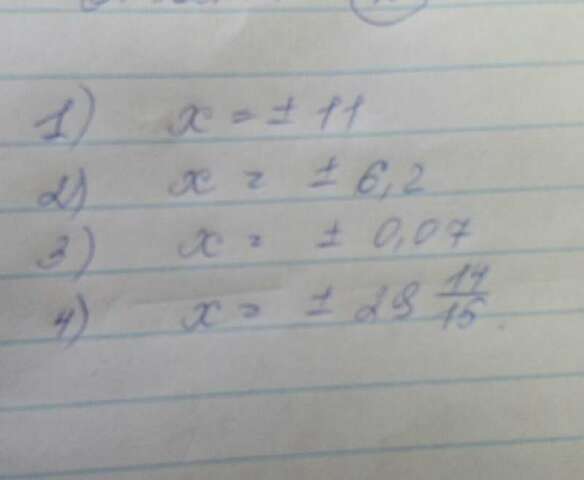 1) x = ± 11
2) x = ± 6,2
3) x = ± 0,07
4) x = ± 29 14/15